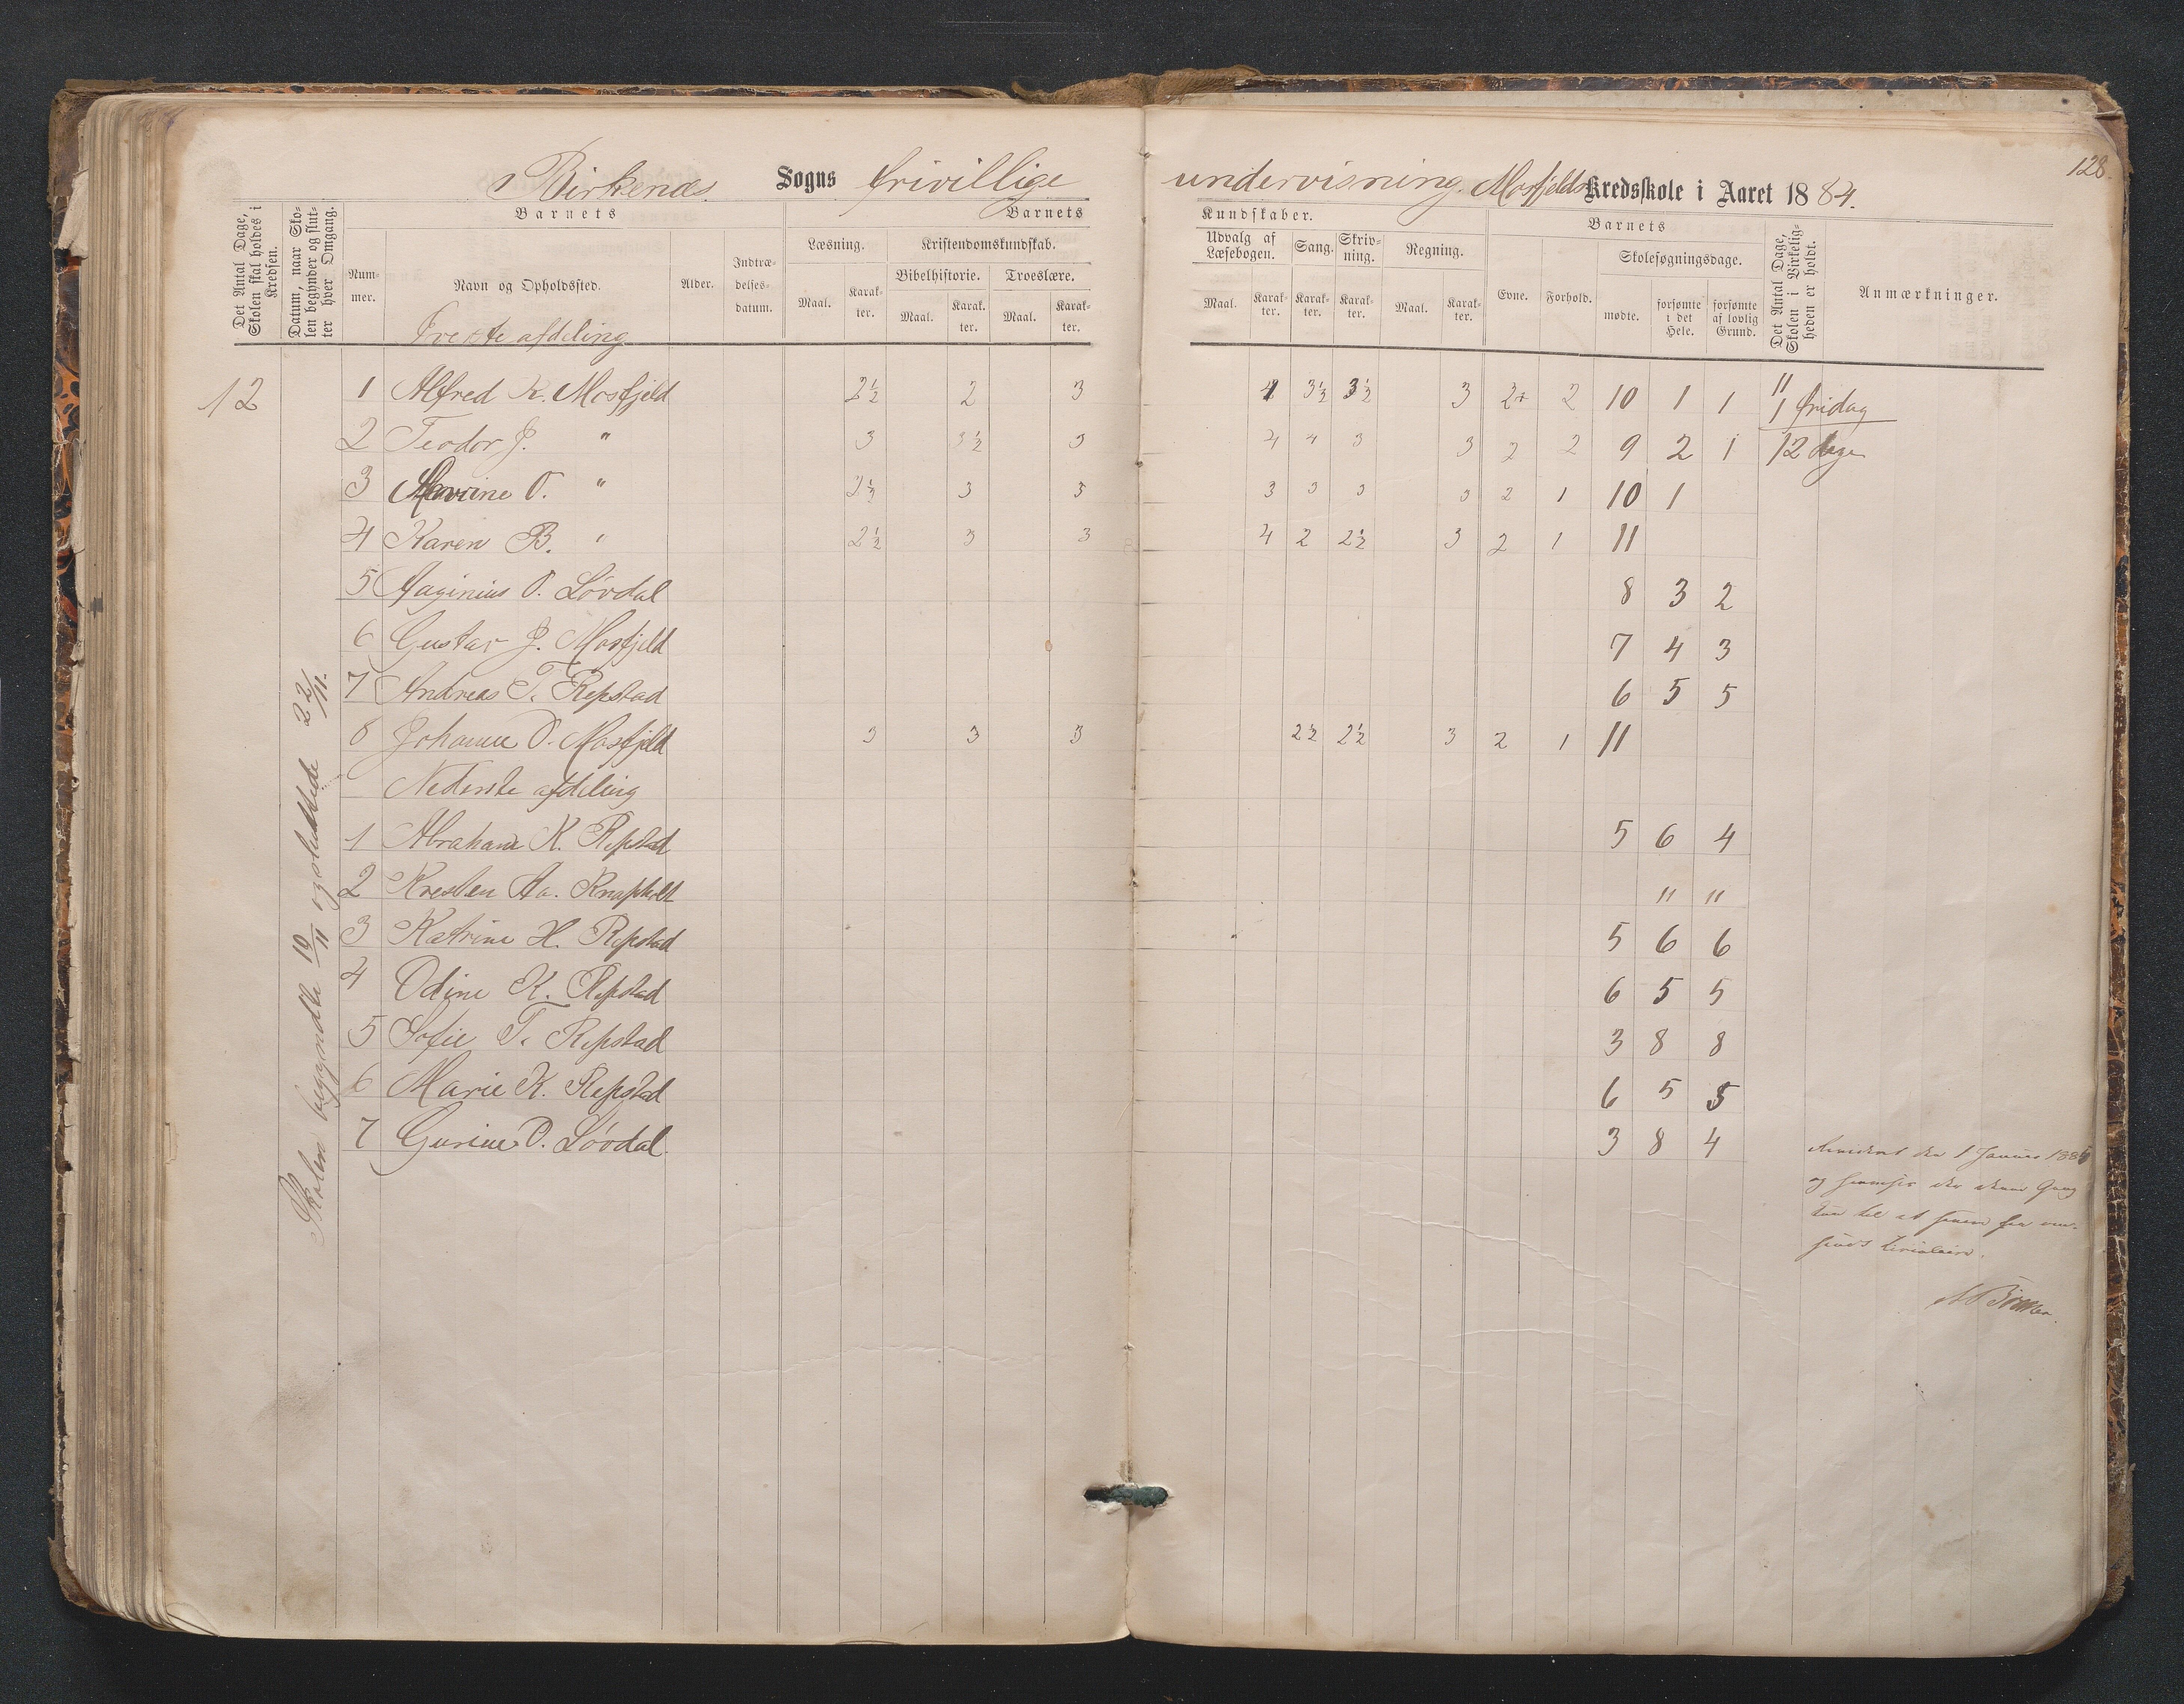 128.
Birkenæs Sogns frivillige undervisning. Mosfjelds Kredsskole i Aaret 1884.
Det Antal Dage, Skolen skal holdes i Kredsen.
Datum, naar Skolen begynder og slutter hver Omgang.
Barnets
Barnets
Kundskaber.
Barnets
Det Antal Dage, Skolen i Virkeligheden er holdt.
Anmærkninger.
Nummer.
Navn og Opholdssted.
Alder.
Indtrædelsesdatum.
Læsning.
Kristendomskundskab.
Udvalg af Læsebogen.
Sang.
Skrivning.
Regning.
Evne.
Forhold.
Skolesøgningsdage.
Bibelhistorie.
Troeslære.
Maal.
Karakter.
Maal.
Karakter.
Maal.
Karakter.
Maal.
Karakter.
Karakter.
Karakter.
Maal.
Karakter.
mødte.
forsømte i det Hele.
forsømte af lovlig Grund.
Øverste afdeling
12 1 Alfred K. Mosfjeld 2½ 2 3 4 3½ 3½ 3 2+ 2 10 1 1 11
1 fridag
2 Teodor J. " 3 3½ 3 4 4 3 3 2 2 9 2 1 12 dage
3 O. " 2½ 3 3 3 3 3 3 2 1 10 1
4 Karen B. " 2½ 3 3 4 2 2½ 3 2 1 11
5 Aaginius O. Løvdal 8 3 2
6 Gustav J. Mosfjeld 7 4 3
7 Andreas T. Repstad 6 5 5
8 Johanne O. Mosfjeld 3 3 3 2½ 2½ 3 2 1 11
Nederste afdeling
1 Abraham K. Repstad 5 6 4
2 Kresten Aa. Knapholt " "
3 Katrine H. Repstad 5 6 6
4 Odine K. Repstad 6 5 5
5 Sofie T. Repstad 3 8 8
6 Marie K. Repstad 6 5 5
7 Gurine O. Løvdal 3 8 4
Skolen begyndte 10/11 og sluttede 22/11.
Revideret den 1 Januar 1885
og den denne Gang
til at